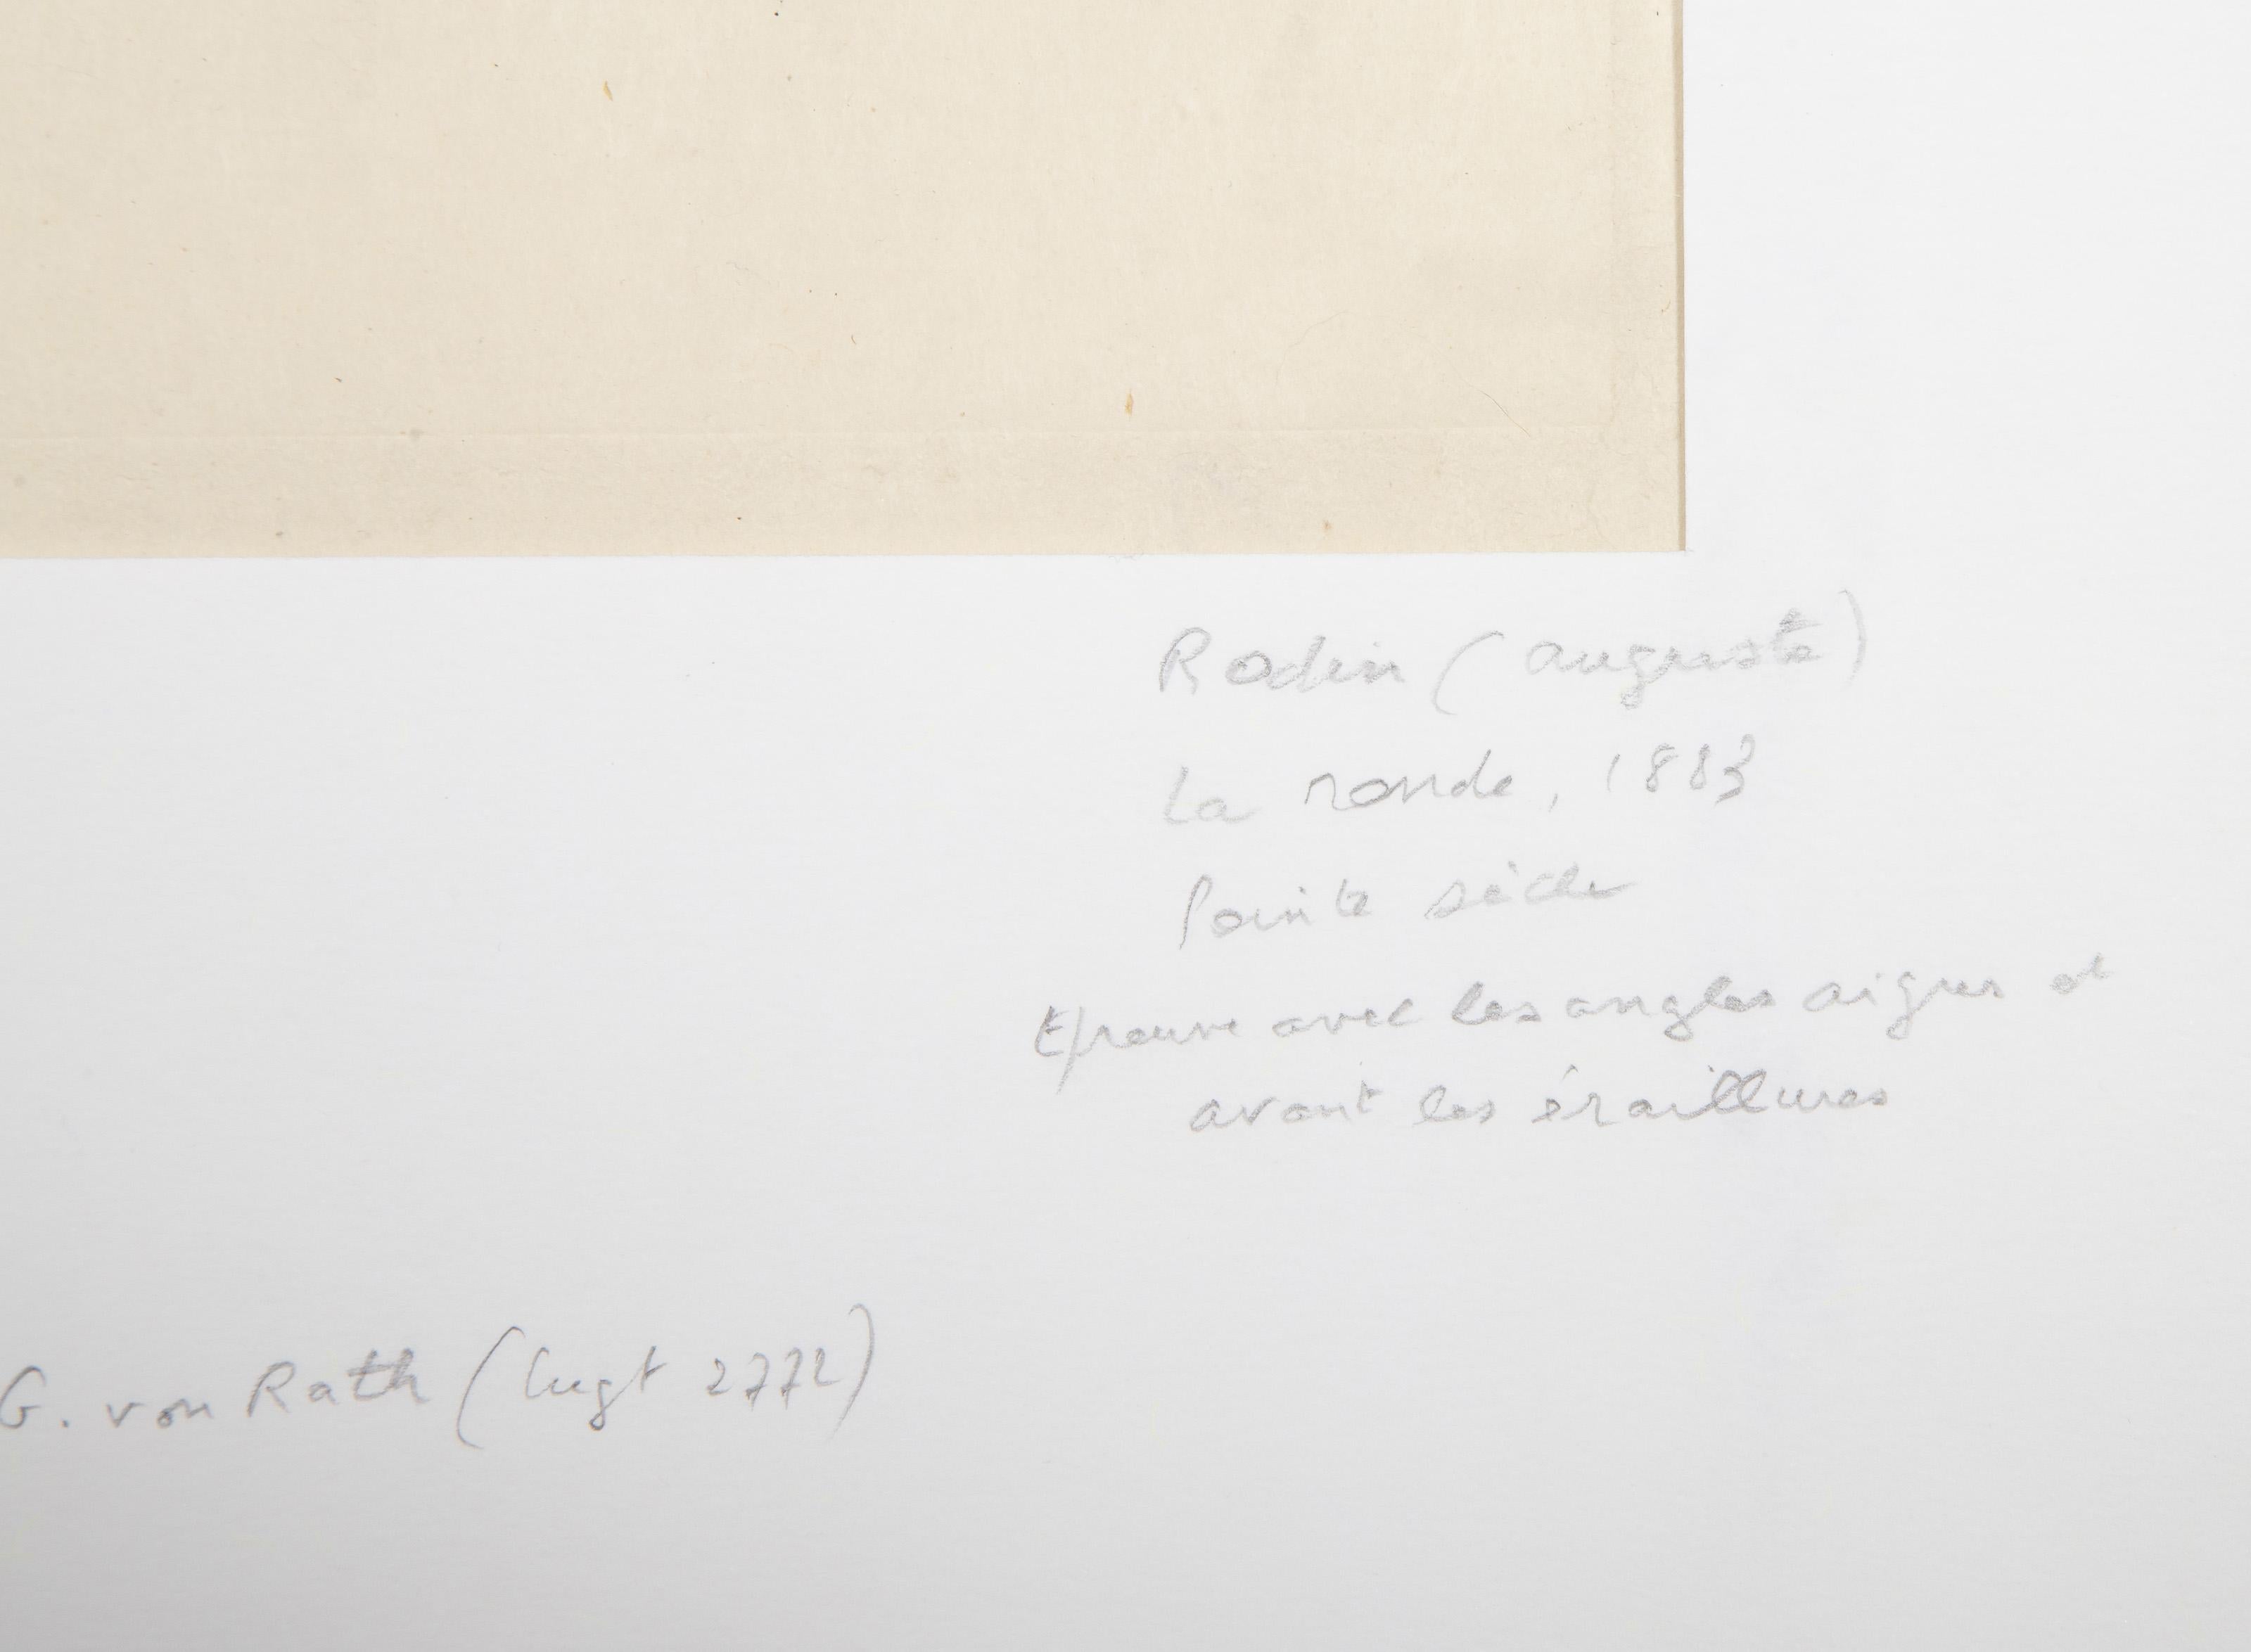 Rodin (auguste)
La ronde, 1883
Pointe sèche
Epreuve avec les angles aigus et
avant les éraillures
G. von Rath (lugt 2772)